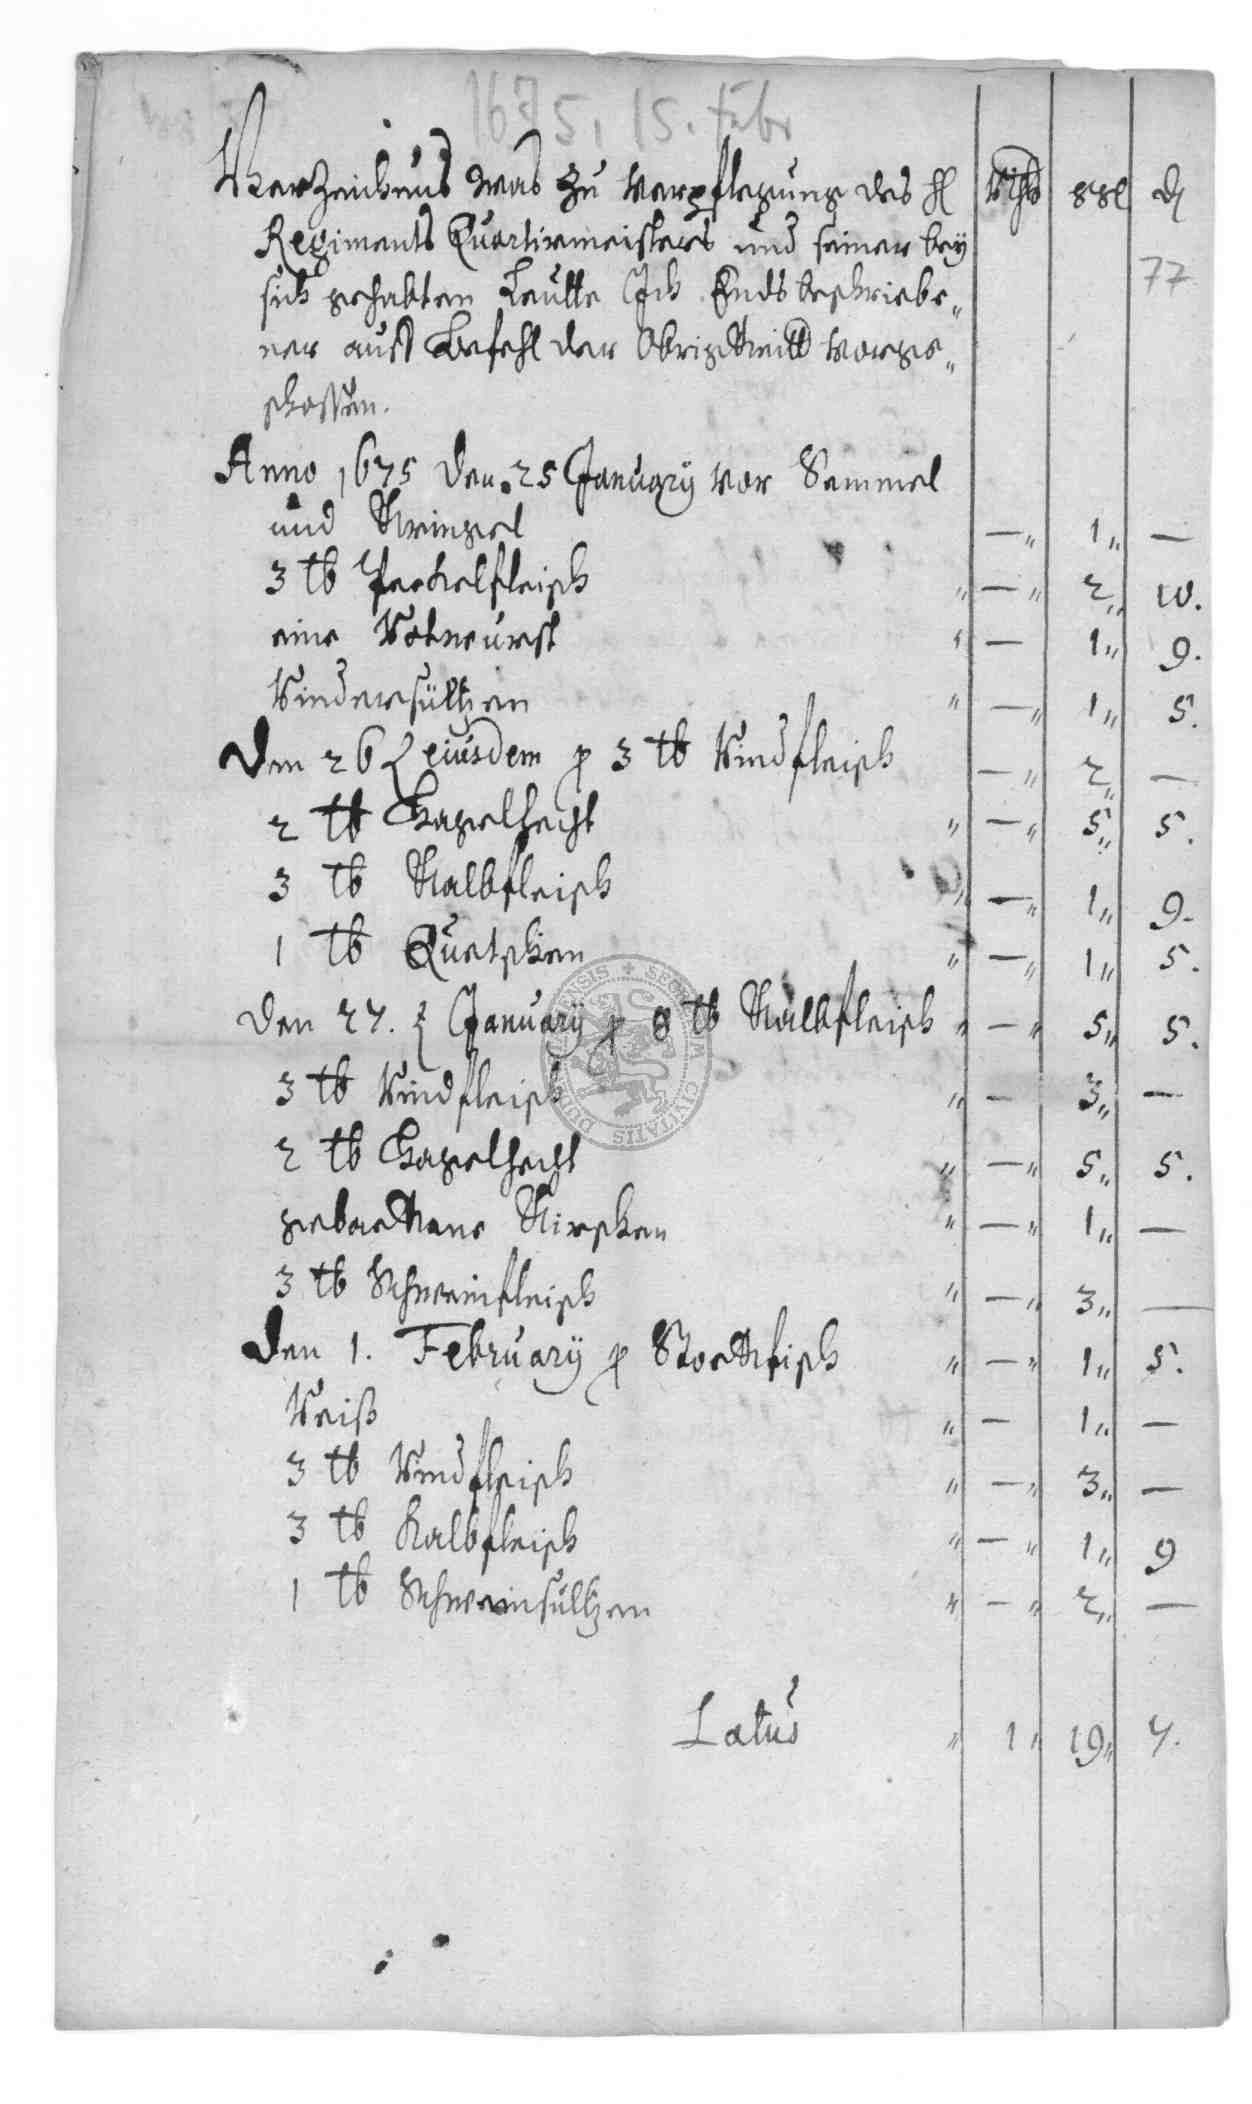 1675, 15. Febr
Verzeichnus was zu Verpflegung des H
Regiments Quartirmeisters und seiner bey
sich gehabten Leutte Ich Endsbeschriebe„
ner auß Befehl der Obrigkeitt vorge„
schossen.
Rthlr ggl d
77
Anno 1675 den 25 January vor Semmel
und Kringel — „ 1 „ —
3 tb Peckelfleisch „ — „ 2 „ 10.
eine Rotwurst „ — 1 „ 9.
Rindersültzen „ — „ 1 „ 5.
Den 26 ejusdem p 3 tb Rindfleisch — „ 2 „ —
2 tb Hagelhecht „ — „ 5 „ 5.
3 tb Kalbfleisch „ — „ 1 „ 9.
1 tb Quetschen „ — „ 1 „ 5.
Den 27. January p 8 tb Kalbfleisch „ — „ 5 „ 5.
3 tb Rindfleisch „ — 3 „ —
2 tb Hagelhecht „ — „ 5 „ 5.
gebackene Kirschen „ — „ 1 „ —
3 tb Schweinfleisch „ — „ 3 „ —
Den 1. February p Stockfisch „ — „ 1 „ 5.
Reiß „ — 1 „ —
3 tb Rindfleisch „ — „ 3 „ —
3 tb Kalbfleisch „ — „ 1 „ 9
1 tb Schweinsültzen „ — „ 2 „ —
Latus „ 1 „ 19 „ 7.